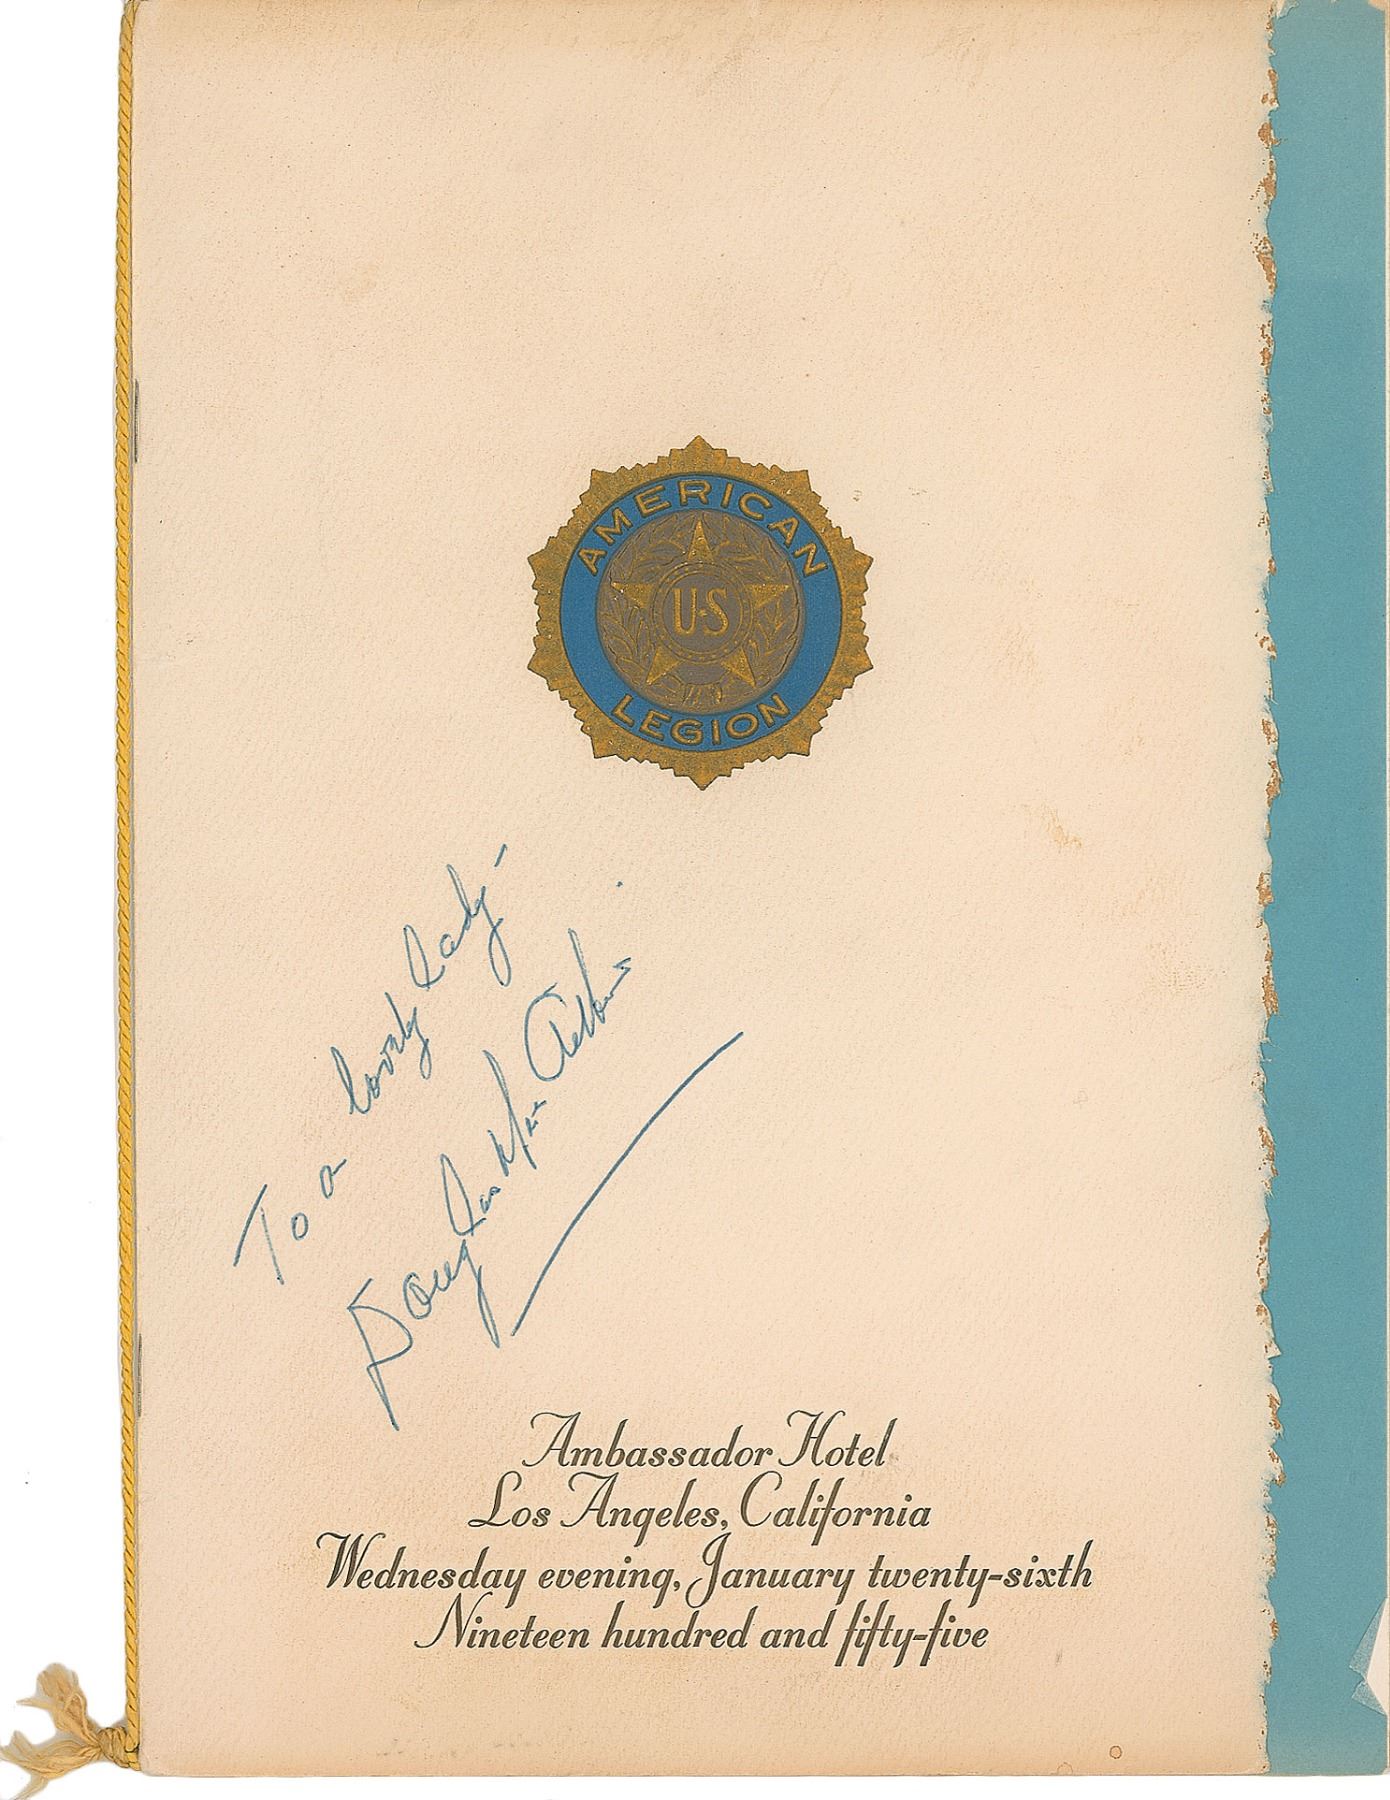 AMERICAN
U-S
LEGION
To a lovely lady-
Douglas MacArthur
Ambassador Hotel
Los Angeles, California
Wednesday evening, January twenty-sixth
Nineteen hundred and fifty-five